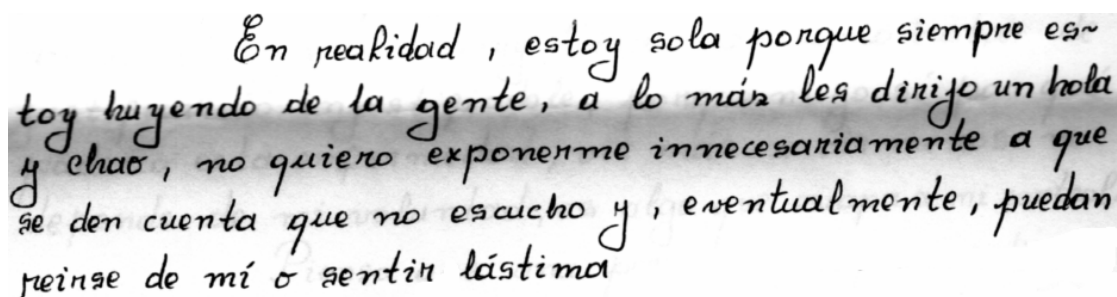 En realidad, estoy sola porque siempre es~
toy huyendo de la gente, a lo más les dirijo un hola
y chao, no quiero exponerme innecesariamente a que
se den cuenta que no escucho y, eventualmente, puedan
reirse de mí o sentir lástima